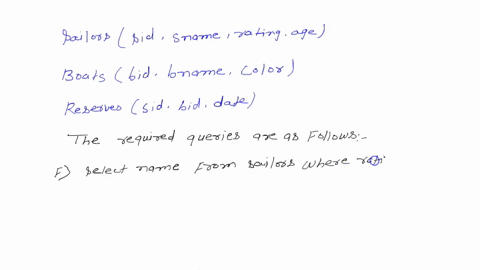 Sailors ( sid. sname, rating. age)
Boats ( bid. bname. color)
Reserves ( sid. bid. date)
The required queries are as follows:-
F) select name from sailors where rati